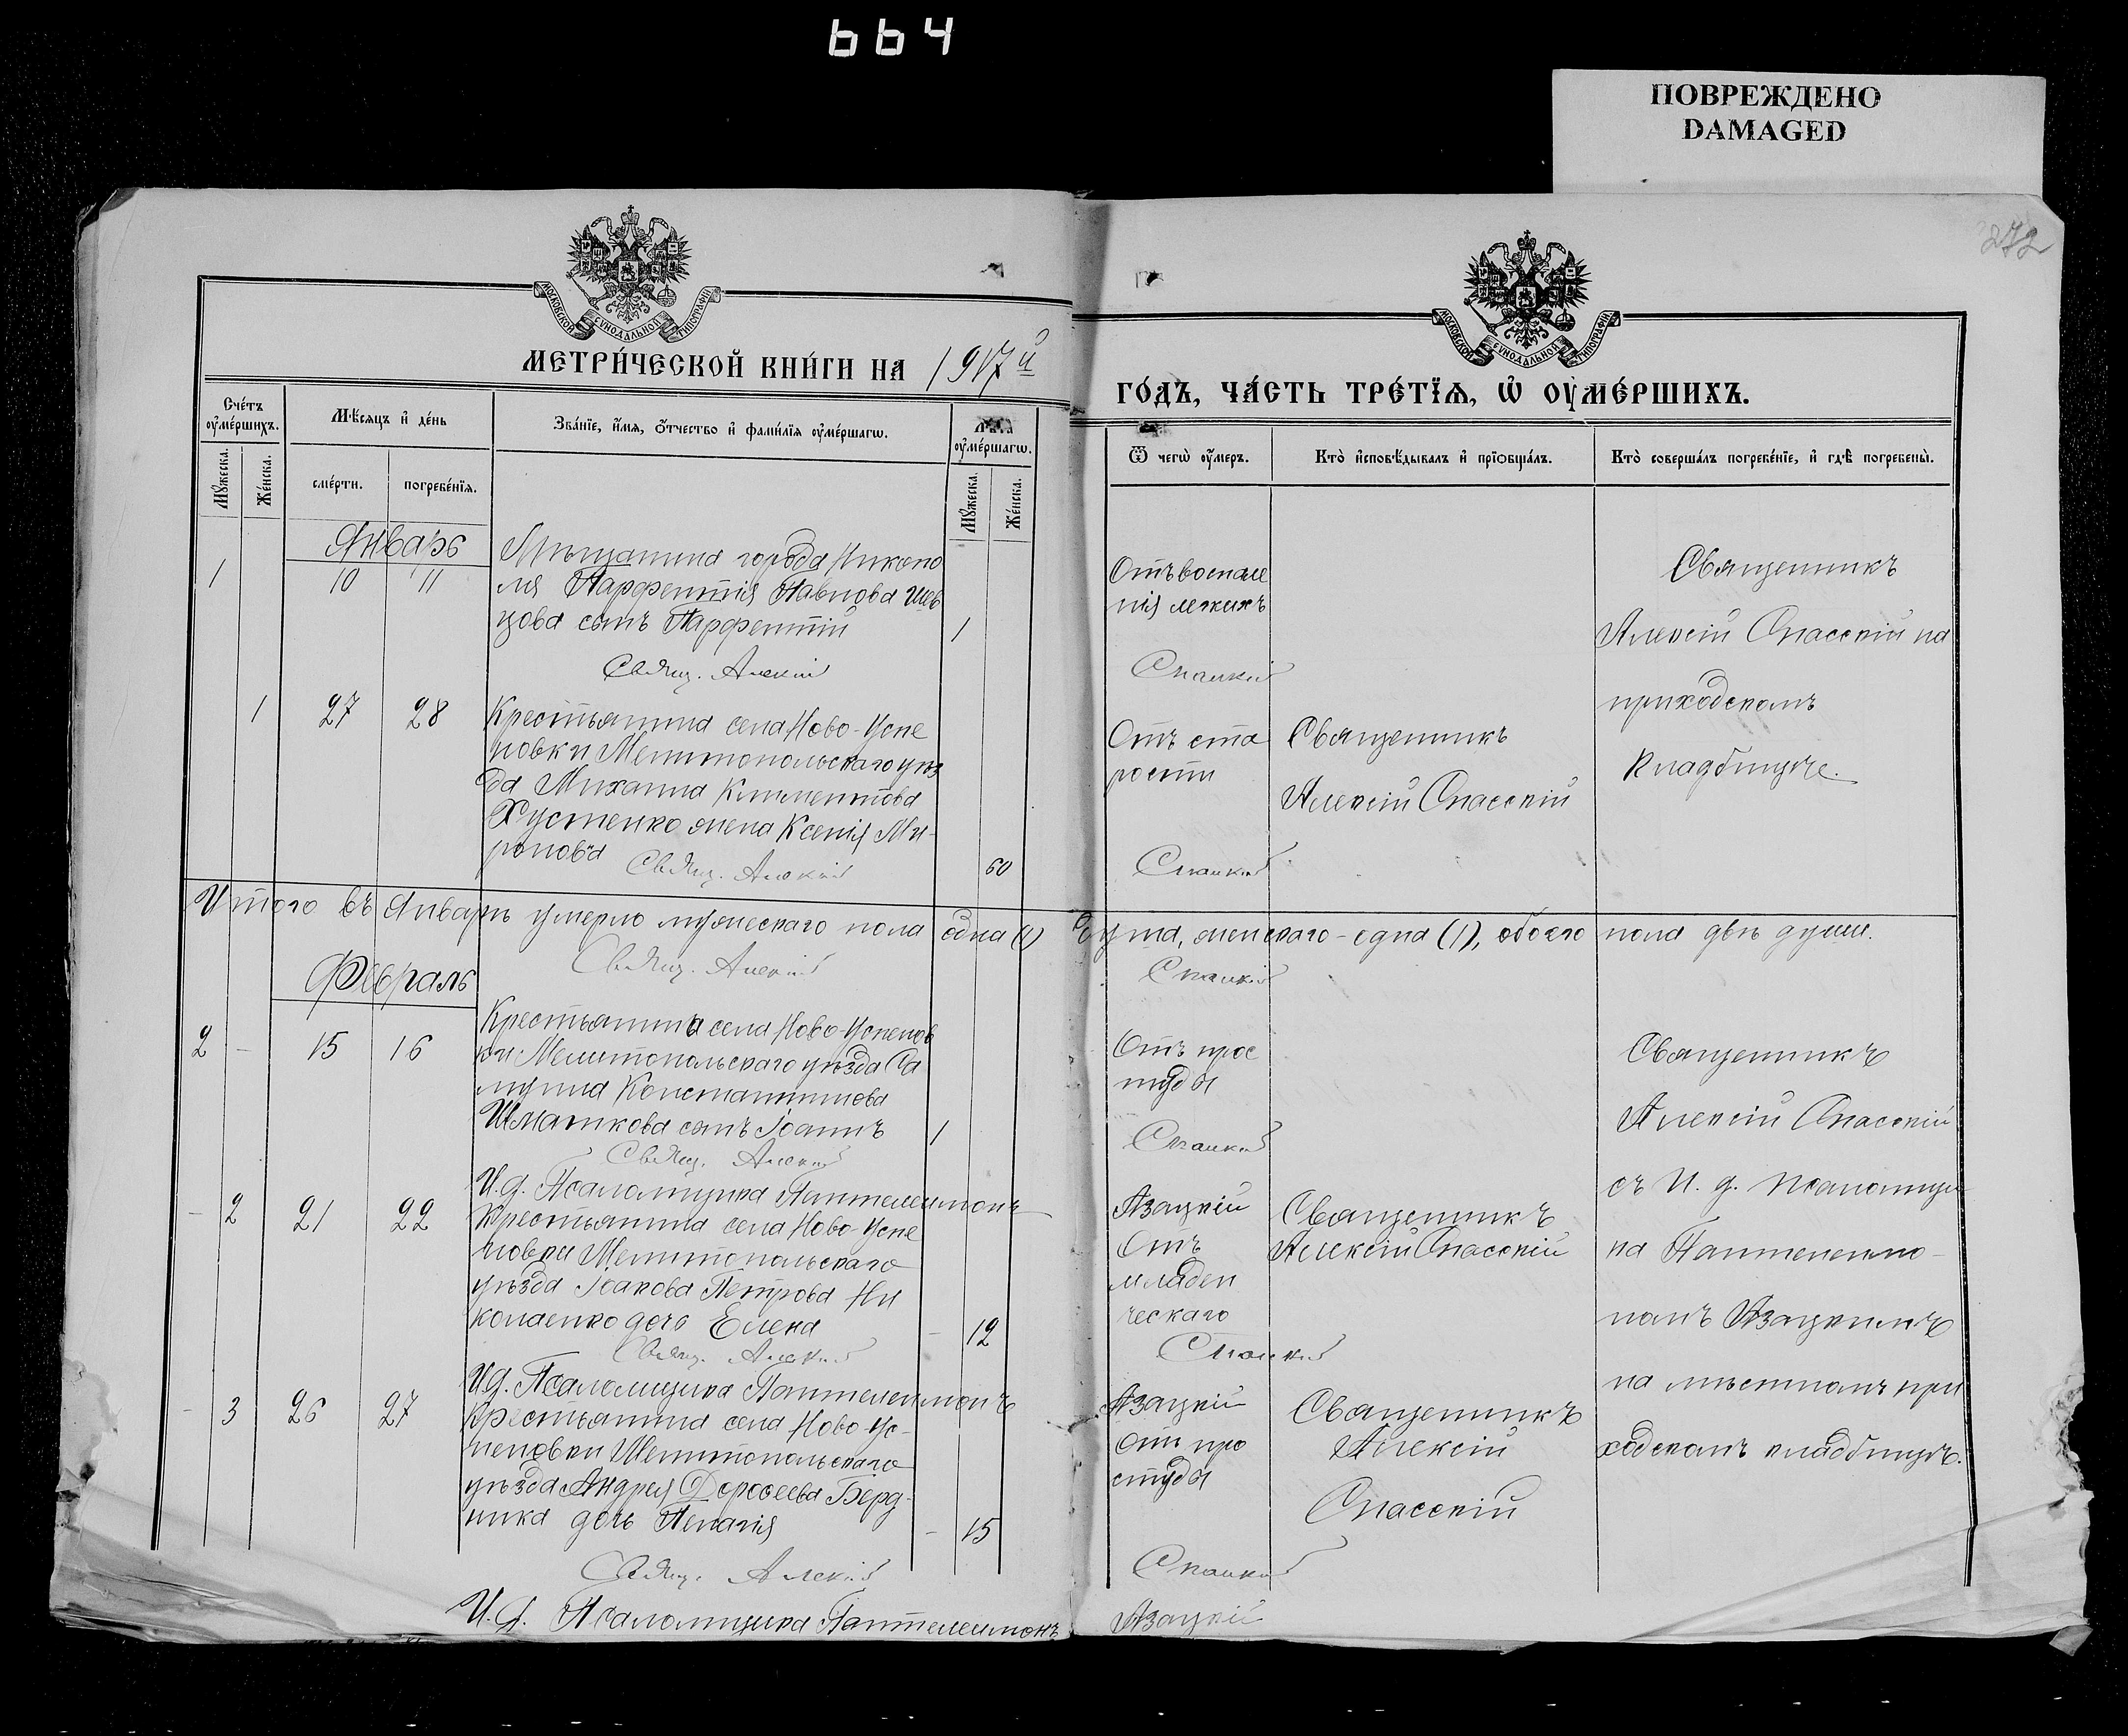 664
ПОВРЕЖДЕНО
DAMAGED
272
МОСКОВСКОЙ СѴНОДАЛЬНОЙ ТИПОГРАФІИ
МОСКОВСКОЙ СѴНОДАЛЬНОЙ ТИПОГРАФІИ
МЕТРИ́ЧЕСКОЙ КНИ́ГИ НА 1917й
ГО́ДЪ, ЧА́СТЬ ТРЕ́ТЇѦ, Ѡ҆ ОУ҆МЕ́РШИХЪ.
Сче́тъ оу҆ме́ршихъ.
Мꙋ́жеска.
Же́нска.
Мѣ́сяцъ и҆ де́нь
сме́рти.
погребе́нїя.
Зва́нїе, и҆́мя, ѻ҆́тчество и҆ фами́лїя оу҆ме́ршагѡ.
Лѣ́та оу҆ме́ршагѡ.
Мꙋ́жеска.
Же́нска.
Ѿ чегѡ̀ оу҆́меръ.
Кто̀ и҆сповѣ́дывалъ и҆ прїѻбща́лъ.
Кто̀ соверша́лъ погребе́нїе, и҆ гдѣ̀ погребены̀.
Январь
1 10 11
Мѣщанина города Никопо
ля Парфентія Павлова Шев
цова сынъ Парфентій
1
Свящ. Алексій
Отъ воспале
нія легкихъ
Спасскій
Священникъ
Алексій Спасскій на
приходскомъ
кладбище.
1 27 28
Крестьянина села Ново-Успе
новки Мелитопольскаго уѣз
да Михаила Климентова
Хустенко жена Ксенія Ми-
ронова
60
Свящ. Алексій
Отъ ста
рости
Спасскій
Священникъ
Алексій Спасскій
Итого въ Январѣ умерло мужескаго пола одна (1) душа, женскаго - одна (1), обоего пола двѣ души.
Свящ. Алексій Спасскій
Февраль
2 - 15 16
Крестьянина села Ново-Успенов
ки Мелитопольскаго уѣзда Са
муила Константинова
Шматкова сынъ Іоаннъ
1
Свящ. Алексій
Отъ прос
туды
Спасскій
И. д. Псаломщика Пантелеимонъ
Азацкій
Священникъ
Алексій Спасскій
съ И. д. псаломщи
ка Пантелеимо-
номъ Азацкимъ
на мѣстномъ при
ходскомъ кладбищѣ.
- 2 21 22
Крестьянина села Ново-Успе
новки Мелитопольскаго
уѣзда Іоакова Петрова Ни
колаенко дочь Елена
- 12
Свящ. Алексій
Отъ
младен
ческаго
Спасскій
Священникъ
Алексій Спасскій
И. д. Псаломщика Пантелеимонъ
Азацкій
- 3 26 27
Крестьянина села Ново-Ус-
пеновки Мелитопольскаго
уѣзда Андрея Доросеева Берд-
ника дочь Пелагія
- 15
Свящ. Алексій
Отъ про
студы
Спасскій
Священникъ
Алексій
Спасскій
И. д. Псаломщика Пантелеимонъ
Азацкій